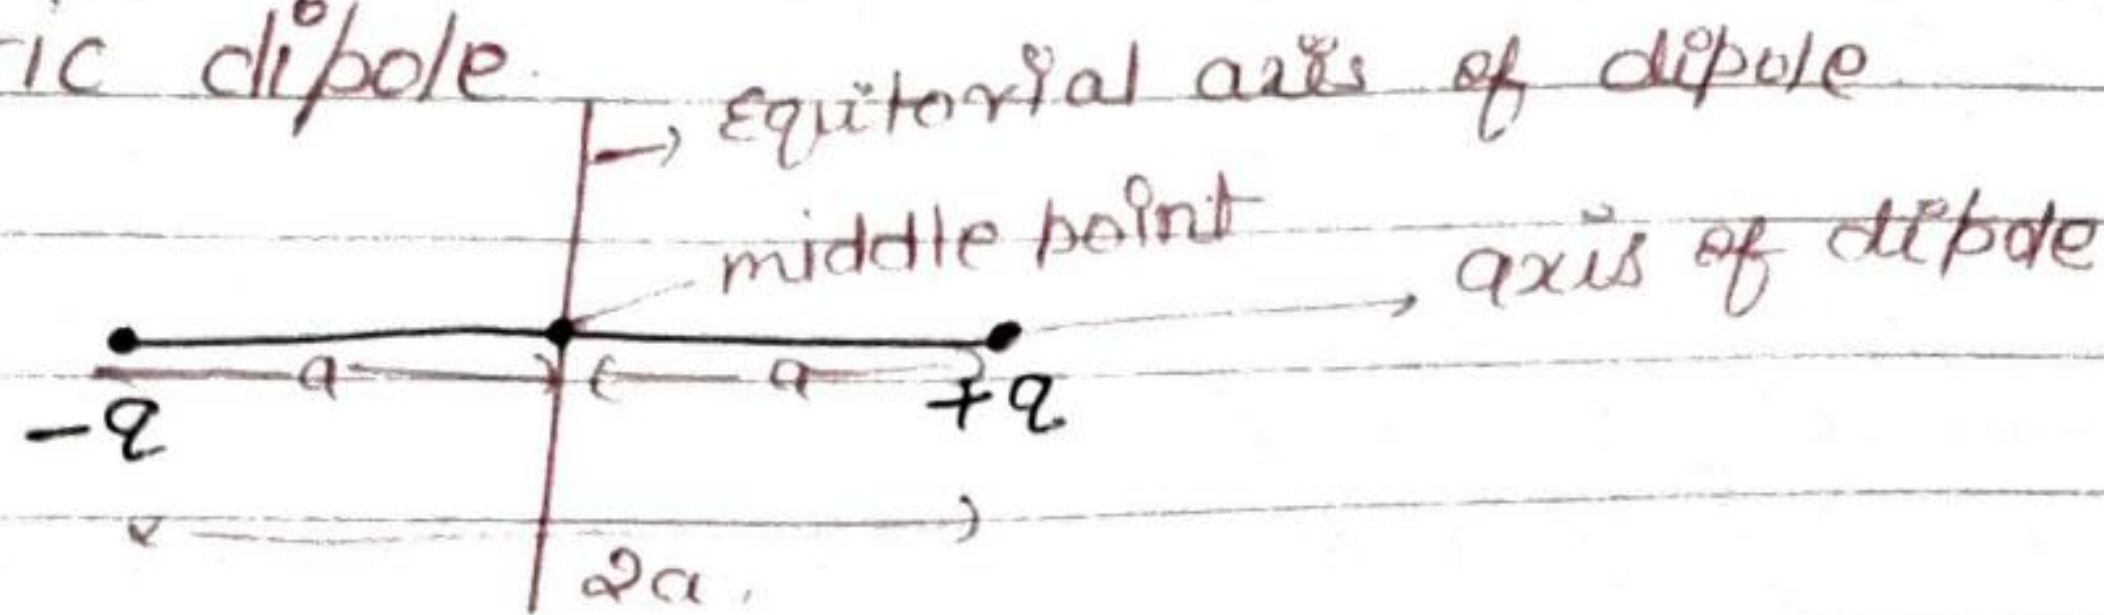 ic dipole.
Equitorial axis of dipole
middle point
axis of dipole
a a
-q +q
2a.